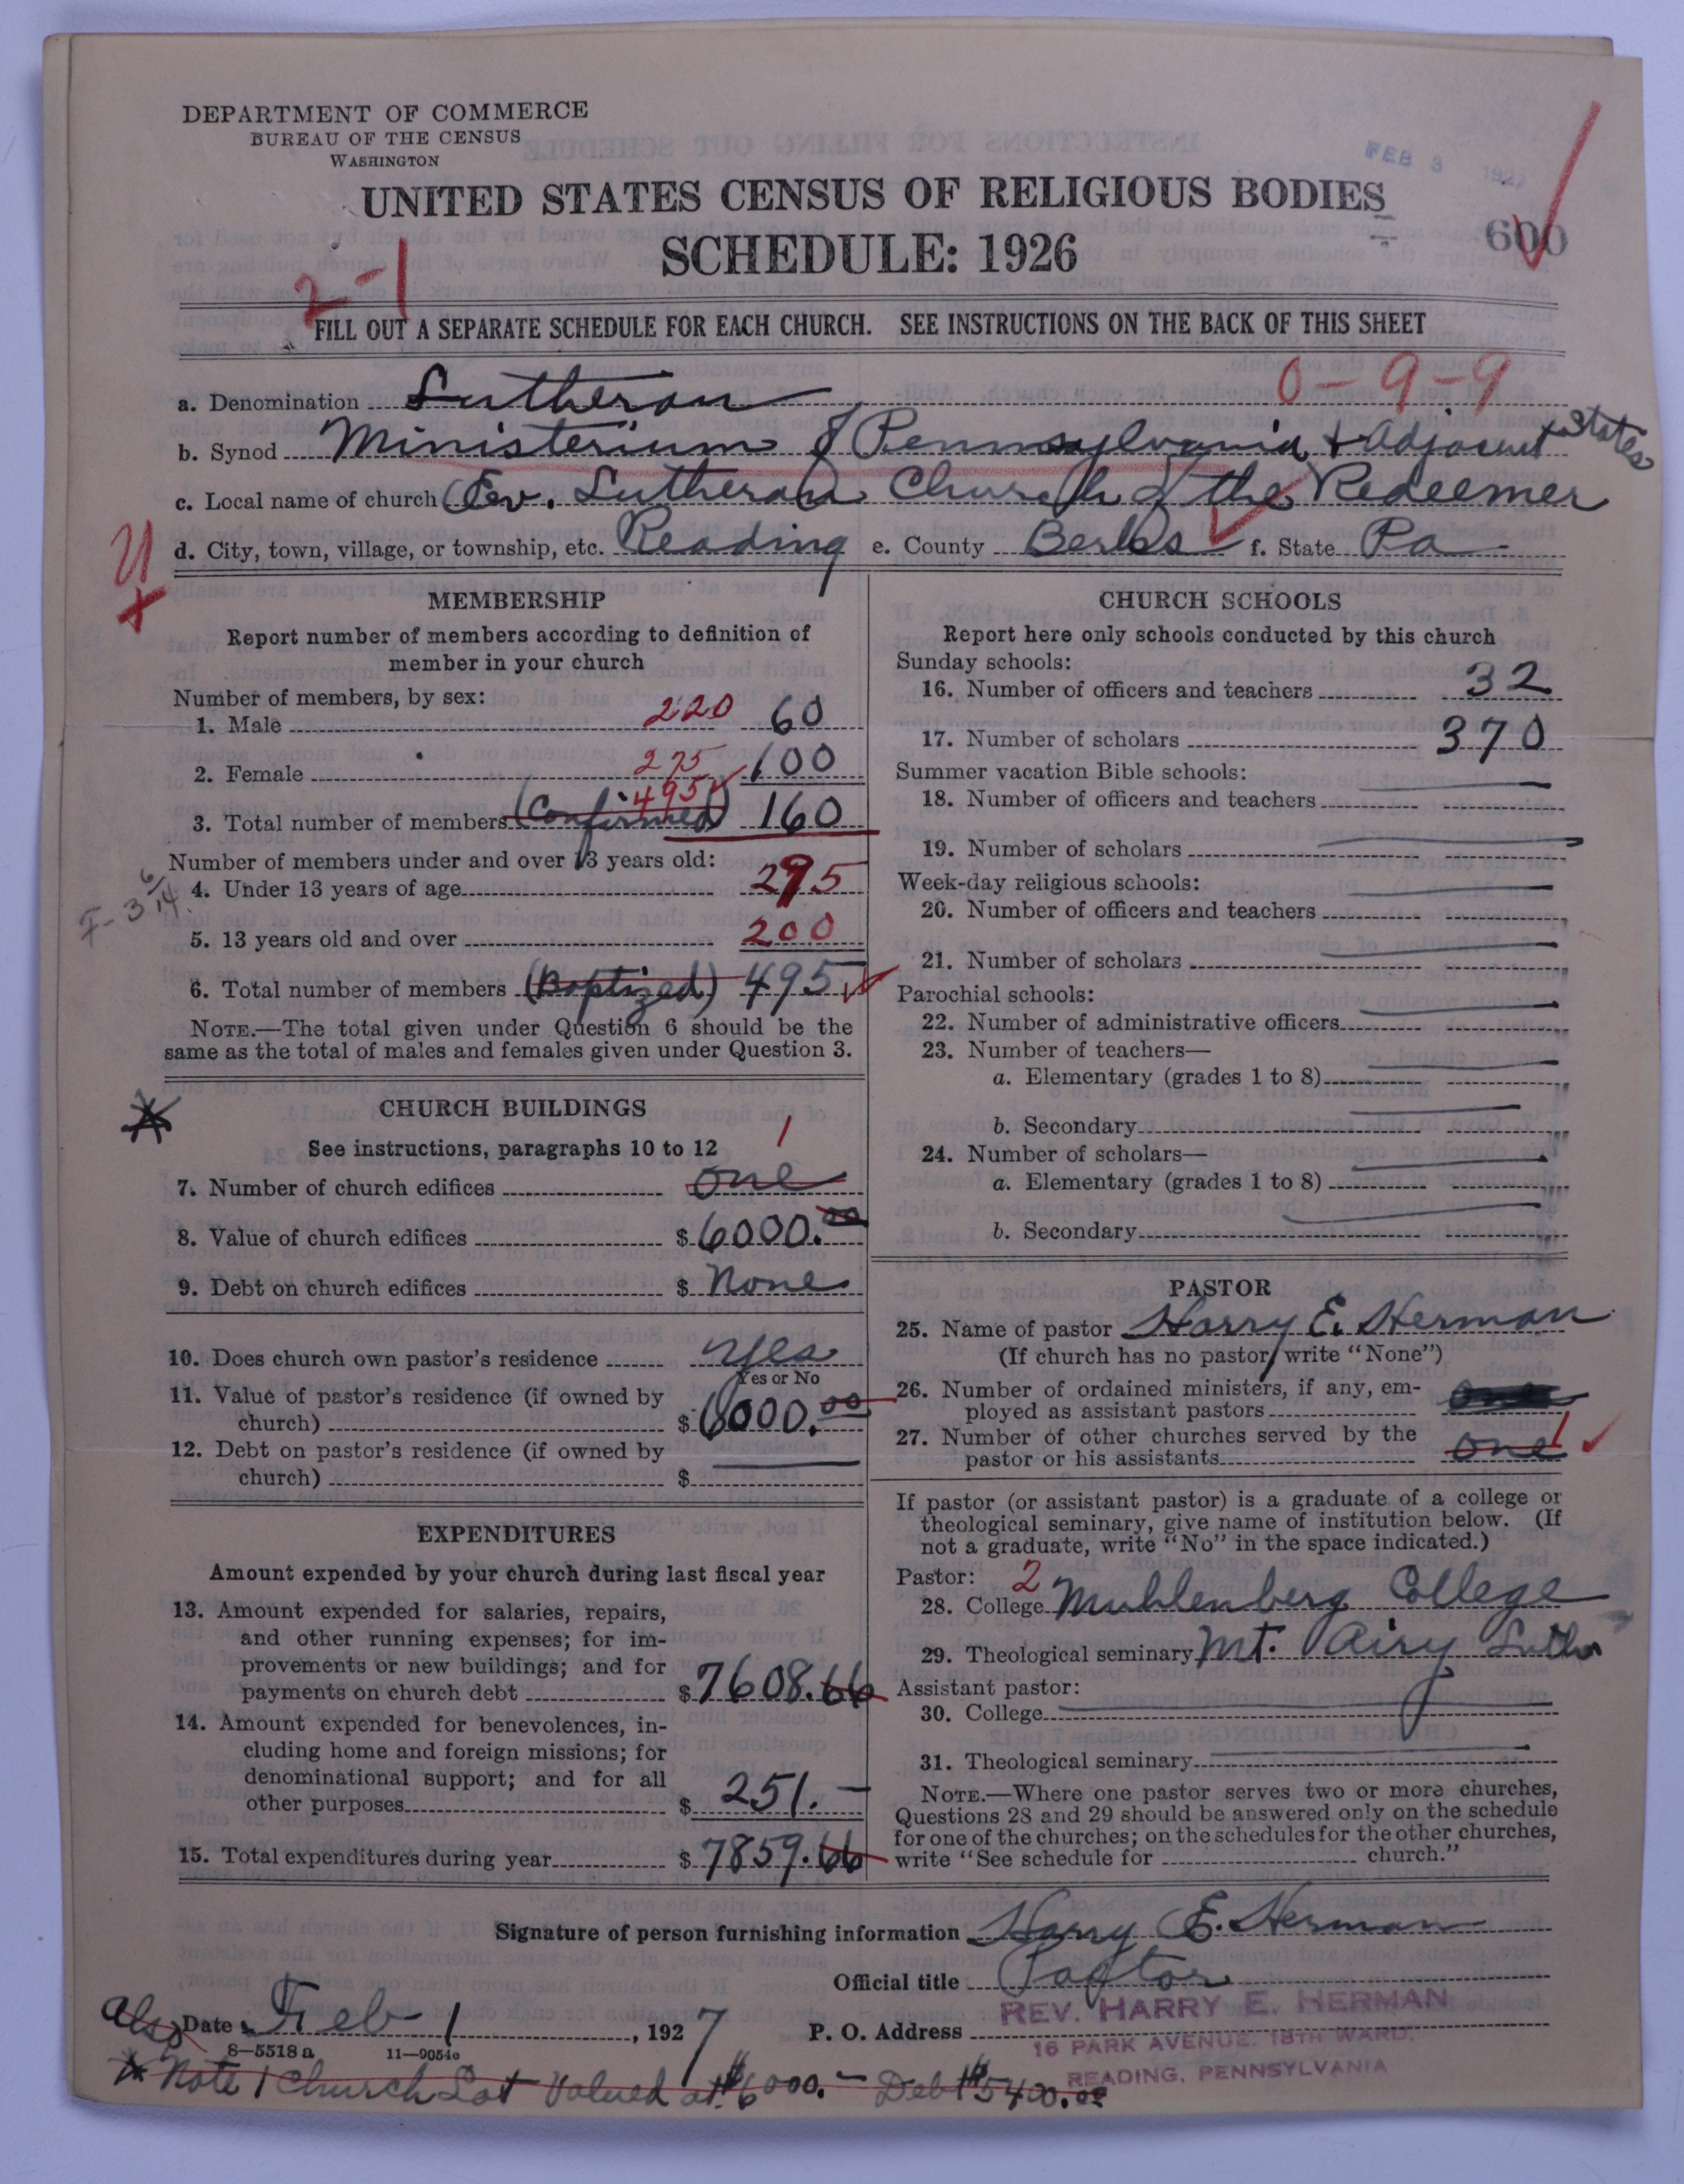 DEPARTMENT OF COMMERCE
BUREAU OF THE CENSUS
WASHINGTON
FEB 3 1927
UNITED STATES CENSUS OF RELIGIOUS BODIES
SCHEDULE: 1926
600
2-1
FILL OUT A SEPARATE SCHEDULE FOR EACH CHURCH. SEE INSTRUCTIONS ON THE BACK OF THIS SHEET
0-9-9
a. Denomination Lutheran
b. Synod Ministerium of Pennsylvania & Adjacent States
c. Local name of church Ev. Lutheran Church of the Redeemer
d. City, town, village, or township, etc. Reading e. County Berks f. State Pa
MEMBERSHIP
Report number of members according to definition of
member in your church
Number of members, by sex:
1. Male 220 60
2. Female 275 100
495
3. Total number of members (Confirmed) 160
Number of members under and over 13 years old:
4. Under 13 years of age 295
5. 13 years old and over 200
6. Total number of members (Baptized) 495
NOTE.—The total given under Question 6 should be the
same as the total of males and females given under Question 3.
CHURCH BUILDINGS
See instructions, paragraphs 10 to 12
1
7. Number of church edifices one
8. Value of church edifices $ 6000.00
9. Debt on church edifices $ None
10. Does church own pastor's residence yes
Yes or No
11. Value of pastor's residence (if owned by
church) $ 6000.00
12. Debt on pastor's residence (if owned by
church) $
EXPENDITURES
Amount expended by your church during last fiscal year
13. Amount expended for salaries, repairs,
and other running expenses; for im-
provements or new buildings; and for
payments on church debt $ 7608.66
14. Amount expended for benevolences, in-
cluding home and foreign missions; for
denominational support; and for all
other purposes $ 251.—
15. Total expenditures during year $ 7859.66
CHURCH SCHOOLS
Report here only schools conducted by this church
Sunday schools:
16. Number of officers and teachers 32
17. Number of scholars 370
Summer vacation Bible schools:
18. Number of officers and teachers
19. Number of scholars
Week-day religious schools:
20. Number of officers and teachers
21. Number of scholars
Parochial schools:
22. Number of administrative officers
23. Number of teachers—
a. Elementary (grades 1 to 8)
b. Secondary
24. Number of scholars—
a. Elementary (grades 1 to 8)
b. Secondary
PASTOR
25. Name of pastor Harry E. Herman
(If church has no pastor, write "None")
26. Number of ordained ministers, if any, em-
ployed as assistant pastors
27. Number of other churches served by the
pastor or his assistants one 1
If pastor (or assistant pastor) is a graduate of a college or
theological seminary, give name of institution below. (If
not a graduate, write "No" in the space indicated.)
Pastor: 2
28. College Muhlenberg College
29. Theological seminary Mt. Airy Luth
Assistant pastor:
30. College
31. Theological seminary
NOTE.—Where one pastor serves two or more churches,
Questions 28 and 29 should be answered only on the schedule
for one of the churches; on the schedules for the other churches,
write "See schedule for church."
Signature of person furnishing information Harry E. Herman
Official title Pastor
Also Date Feb 1, 1927
P. O. Address REV. HARRY E. HERMAN
16 PARK AVENUE. 18TH WARD.
READING, PENNSYLVANIA
8-5518a 11-9054o
* Note 1 Church Lot Valued at $6000.— Debt $5400.00